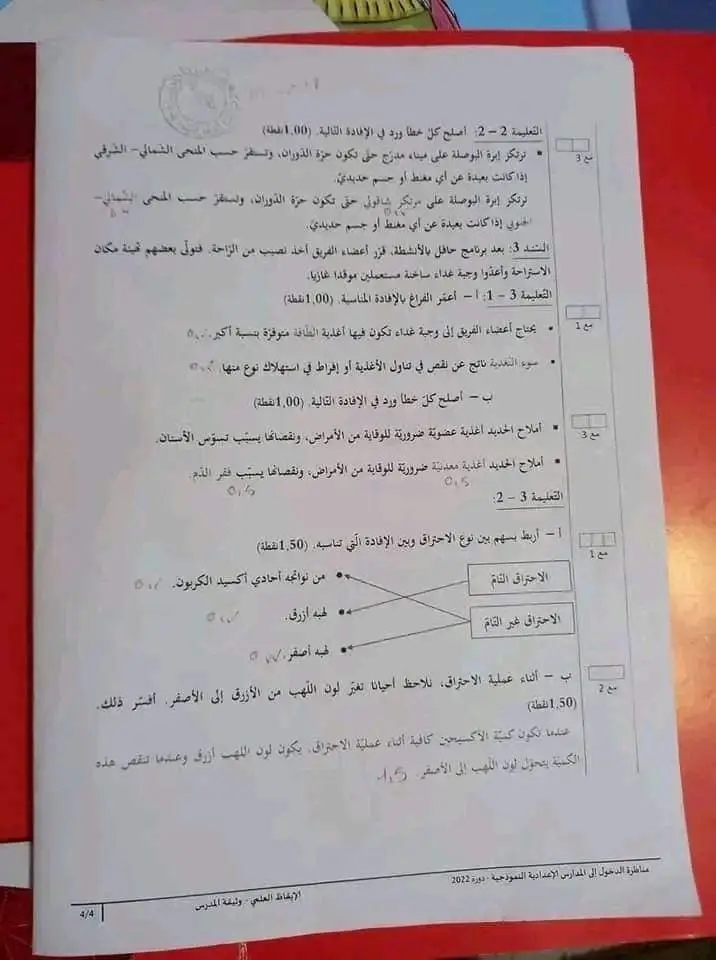 التعليمة 2 – 2: أصلح كلّ خطأ ورد في الإفادة التالية. (1,00نقطة)
مع 3
• ترتكز إبرة البوصلة على ميناء مدرّج حتّى تكون حرّة الدّوران، وتستقرّ حسب المنحى الشمالي– الشّرقي
إذا كانت بعيدة عن أي مغنط أو جسم حديديّ.
ترتكز إبرة البوصلة على مرتكز شاقولي حتّى تكون حرّة الدّوران، وتستقرّ حسب المنحى الشمالي–
الجنوبي إذا كانت بعيدة عن أي مغنط أو جسم حديديّ.
السّند 3: بعد برنامج حافل بالأنشطة، قرّر أعضاء الفريق أخذ نصيب من الرّاحة. فتولّى بعضهم تهيئة مكان
الاستراحة وأعدّوا وجبة غداء ساخنة مستعملين موقدا غازيا.
التّعليمة 3 – 1: أ – أعمّر الفراغ بالإفادة المناسبة. (1,00نقطة)
مع 1
• يحتاج أعضاء الفريق إلى وجبة غداء تكون فيها أغذية الطّاقة متوفّرة بنسبة أكبر.
• سوء التغذية ناتج عن نقص في تناول الأغذية أو إفراط في استهلاك نوع منها.
ب – أصلح كلّ خطأ ورد في الإفادة التّالية. (1,00نقطة)
مع 3
• أملاح الحديد أغذية عضويّة ضروريّة للوقاية من الأمراض، ونقصانها يسبّب تسوّس الأسنان.
• أملاح الحديد أغذية معدنيّة ضروريّة للوقاية من الأمراض، ونقصانها يسبّب فقر الدّم.
0,5 0,5
التّعليمة 3 – 2:
أ – أربط بسهم بين نوع الاحتراق وبين الإفادة الّتي تناسبه. (1,50نقطة)
مع 1
الاحتراق التامّ
• من نواتجه أحادي أكسيد الكربون.
• لهبه أزرق.
الاحتراق غير التّامّ
• لهبه أصفر.
ب – أثناء عملية الاحتراق، نلاحظ أحيانا تغيّر لون اللّهب من الأزرق إلى الأصفر. أفسّر ذلك.
مع 2
(1,50نقطة)
عندما تكون كميّة الأكسيجين كافية أثناء عمليّة الاحتراق. يكون لون اللهب أزرق وعندما تنقص هذه
الكميّة يتحوّل لون اللّهب إلى الأصفر. 1,5
مناظرة الدخول إلى المدارس الإعدادية النموذجية - دورة 2022
الإيقاظ العلمي - وثيقة المدرس
4/4